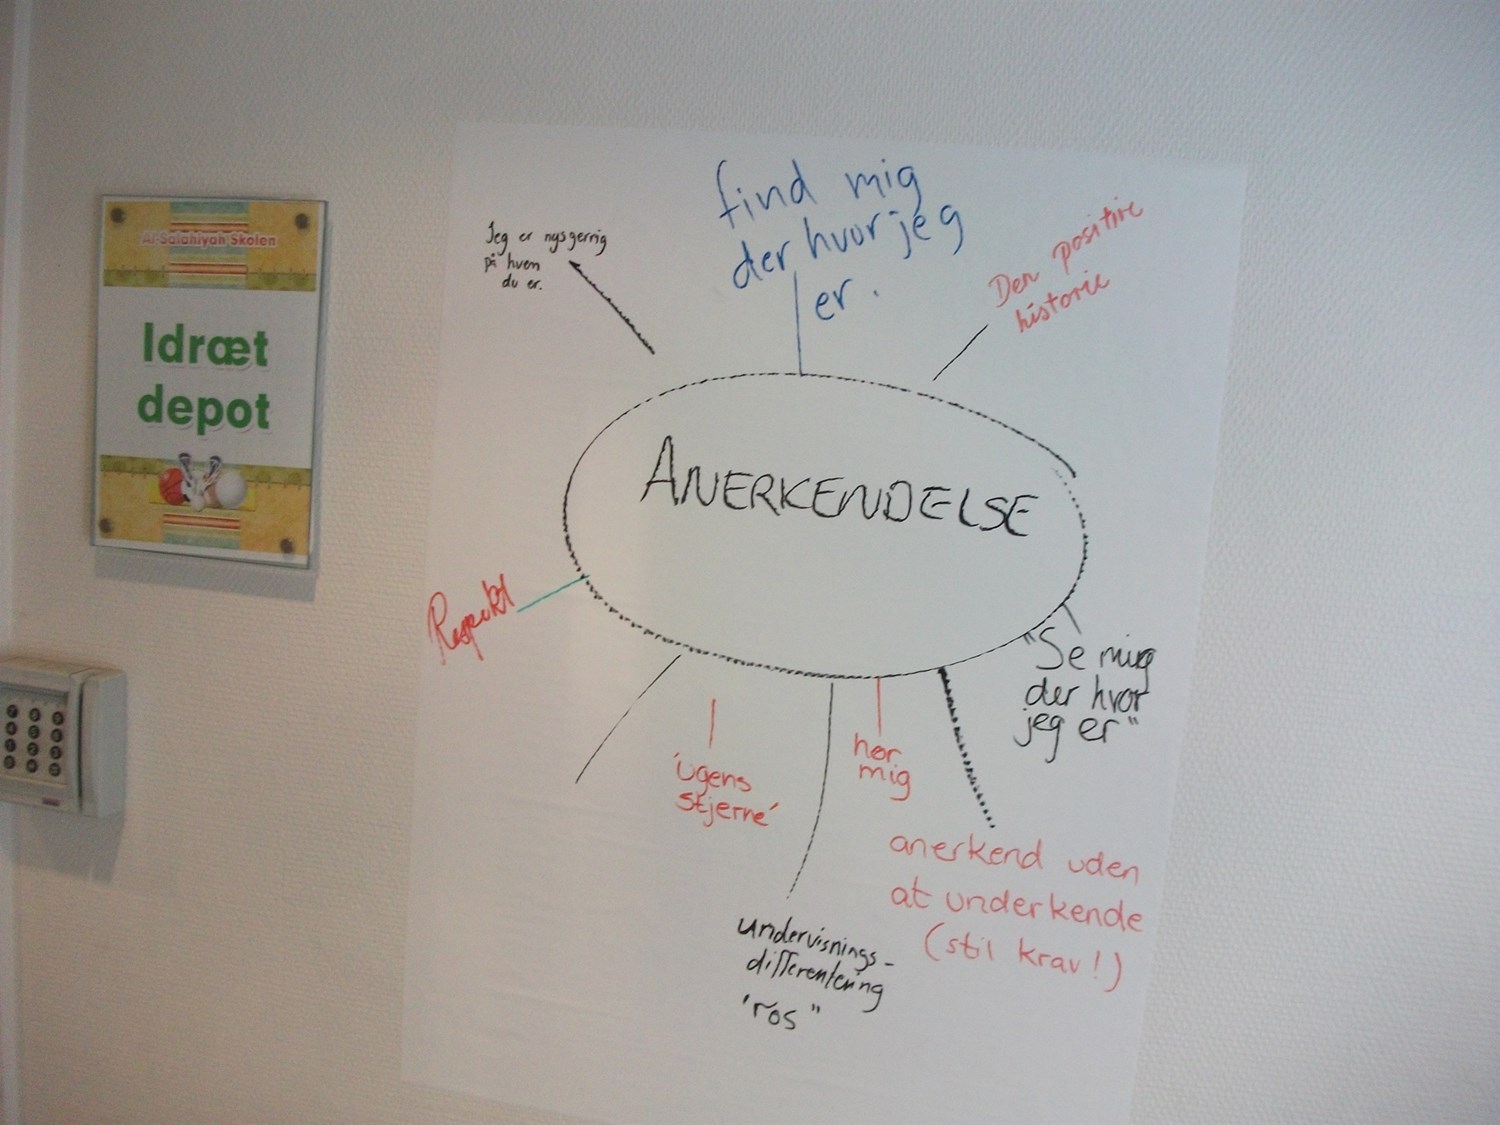 Al-Salahiyah Skolen
Idræt
depot
Jeg er nysgerrig
på hvem
du er.
find mig
der hvor jeg
er.
Den positive
historie
ANERKENDELSE
Respekt
"Se mig
der hvor
jeg er"
'ugens
stjerne'
hør
mig
anerkend uden
at underkende
(stil krav!)
undervisnings-
differentering
'ros"